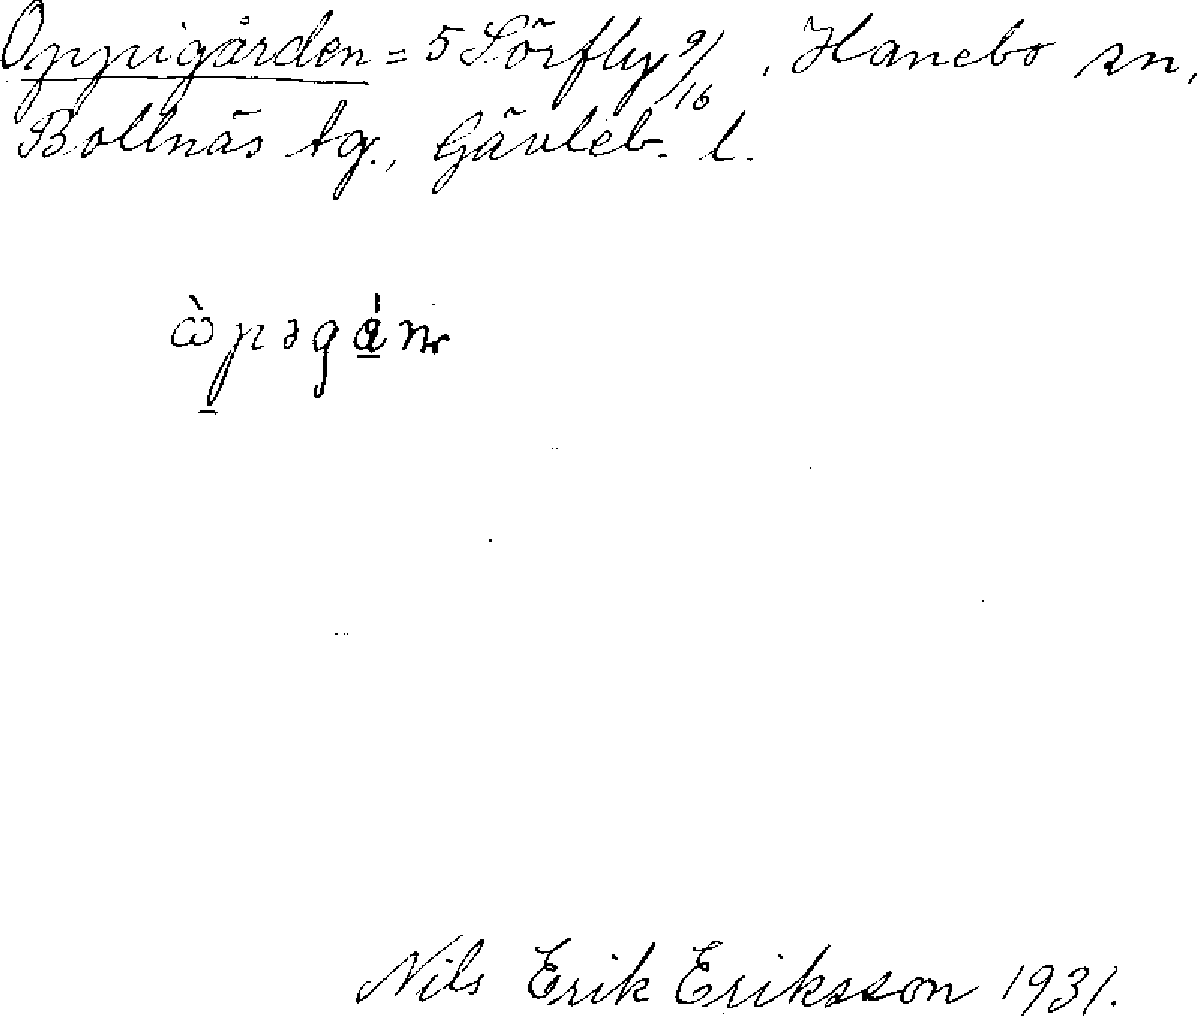 Oppigården = 5 Sörfly 9/16, Hanebo sn,
Bollnäs tg., Gävleb. l.
ὼp̱əgá̱n
Nils Erik Eriksson 1931.